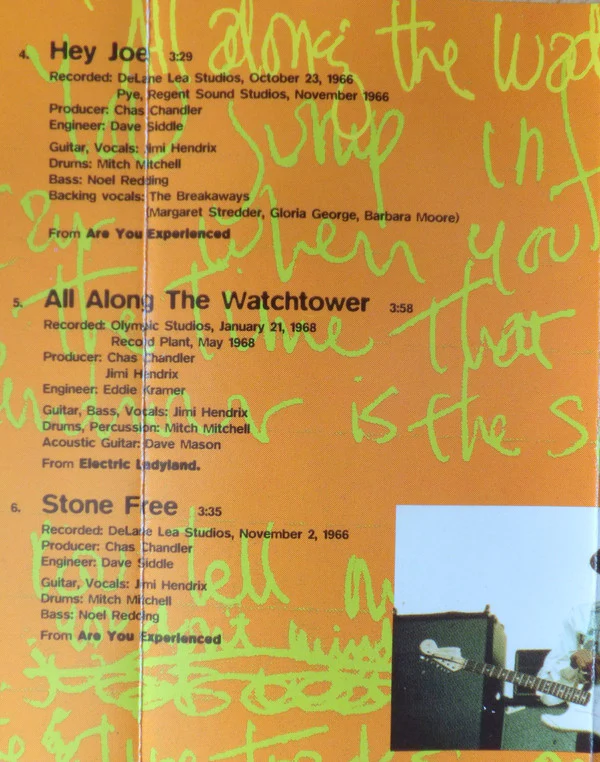 4. Hey Joe 3:29
Recorded: DeLane Lea Studios, October 23, 1966
Pye, Regent Sound Studios, November 1966
Producer: Chas Chandler
Engineer: Dave Siddle
Guitar, Vocals: Jimi Hendrix
Drums: Mitch Mitchell
Bass: Noel Redding
Backing vocals: The Breakaways
(Margaret Stredder, Gloria George, Barbara Moore)
From Are You Experienced
5. All Along The Watchtower 3:58
Recorded: Olympic Studios, January 21, 1968
Record Plant, May 1968
Producer: Chas Chandler
Jimi Hendrix
Engineer: Eddie Kramer
Guitar, Bass, Vocals: Jimi Hendrix
Drums, Percussion: Mitch Mitchell
Acoustic Guitar: Dave Mason
From Electric Ladyland.
6. Stone Free 3:35
Recorded: DeLane Lea Studios, November 2, 1966
Producer: Chas Chandler
Engineer: Dave Siddle
Guitar, Vocals: Jimi Hendrix
Drums: Mitch Mitchell
Bass: Noel Redding
From Are You Experienced
All along the
Jump in
when you
the time that
is the S
tell